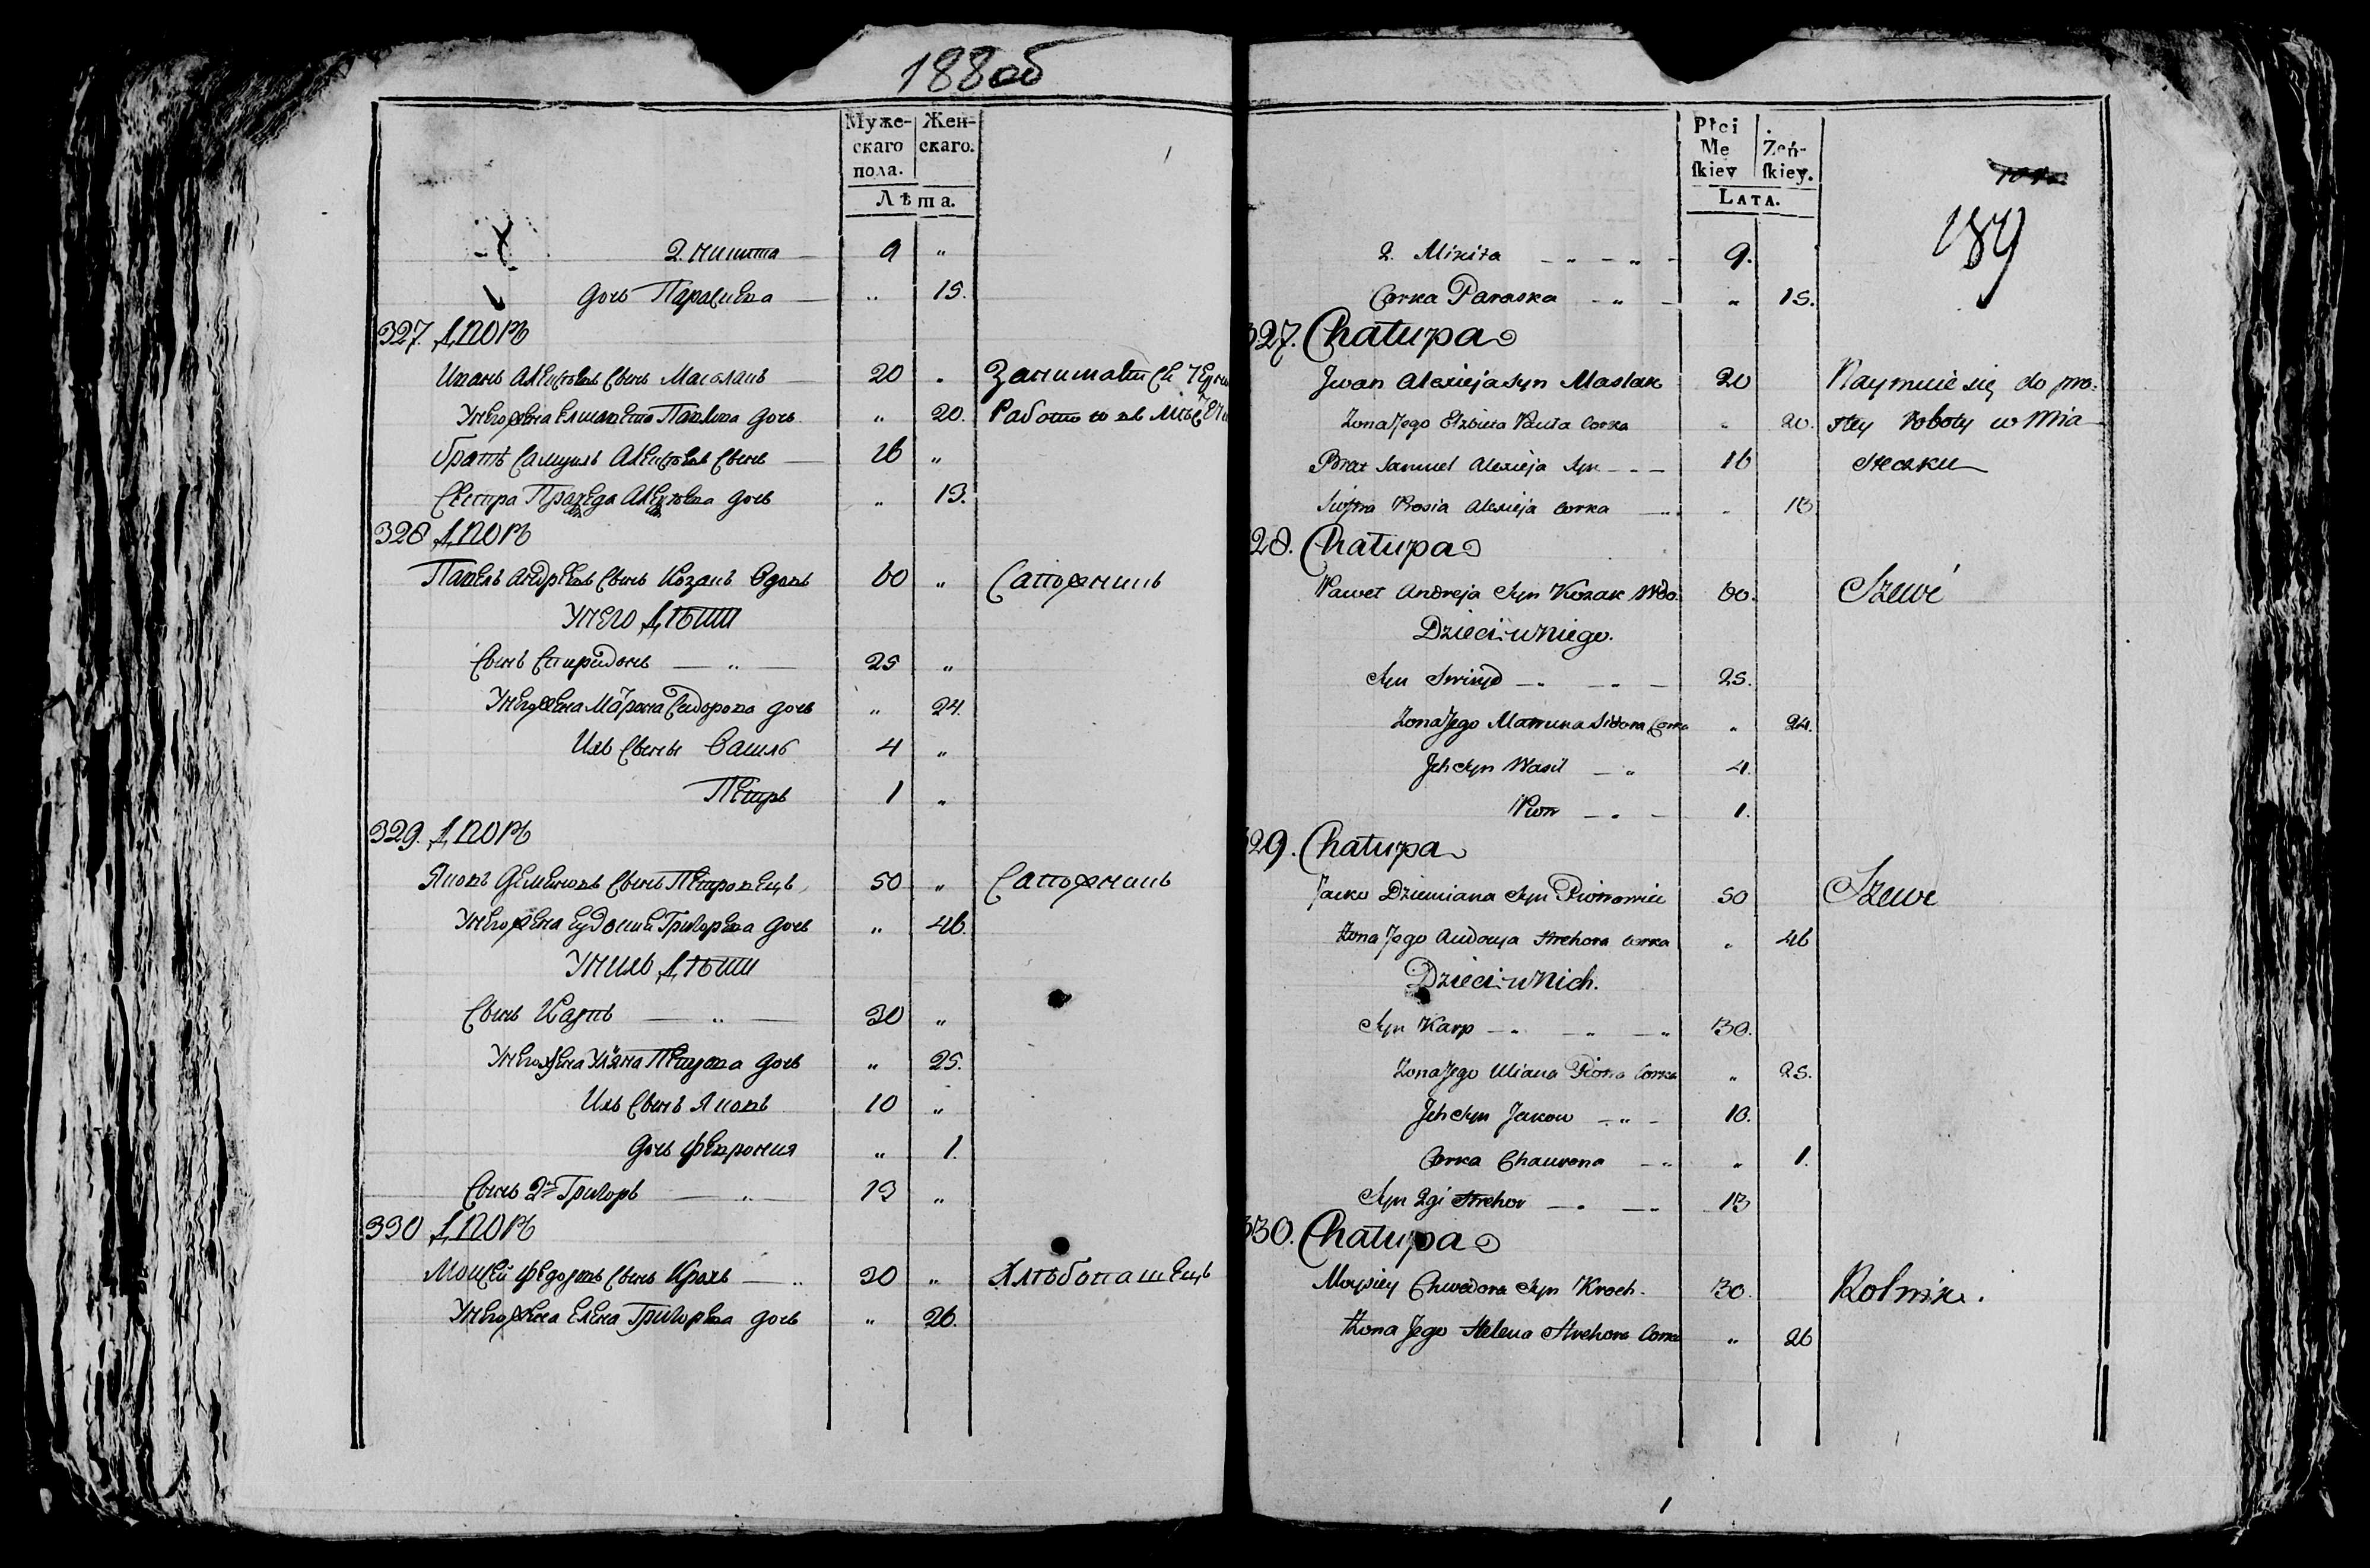 188об
Муже-
скаго
пола.
Жен-
скаго.
Лѣта.
2. Никита — 9 "
дочь Параскева — " 15.
327. Дворъ
Иванъ Алексѣевъ сынъ Маслакъ — 20 " Занимается черн
У него жена Елисавета Павлова дочь " 20. Работою въ Мѣстеч
братъ Самуилъ Алексѣевъ сынъ — 16 "
Сестра Пракседа Алексѣева дочь " 13.
328 Дворъ
Павелъ Андреевъ сынъ Козакъ вдовъ 60 " Сапожникъ
У него Дѣти
Сынъ Спиридонъ — " — 25 "
У него жена Марѳна Сидорова дочь " 24.
Ихъ сыны Василь 4 "
Петръ 1 "
329. Дворъ
Яковъ Деменовъ сынъ Петровецъ 50 " Сапожникъ
У него жена Евдокия Григорьева дочь " 46.
У нихъ Дѣти
Сынъ Карпъ — " — 30 "
У него жена Уляна Петрова дочь " 25.
Ихъ сынъ Яковъ 10 "
дочь Феврония " 1.
Сынъ 2й Григоръ — " 13 "
330 Дворъ
Моисей Федоровъ сынъ Крохъ — " 30 " Хлѣбопашецъ
У него жена Елена Григорьева дочь " 26.
Płci
Mę
ſkiey
Żeń-
ſkiey.
LATA.
189
2. Mikita — " — " — 9.
Corka Paraska — " — " 15.
327. Chałupa
Jwan Alexieja Syn Maslak 20 Naymuie się do pro:
Zona Jego Elzbieta Pawła Corka " 20. stey Roboty w Mia
Brat Samuel Alexieja Syn — " — 16 steczku
Siostra Prosia Alexieja Corka — " " 13
28. Chałupa
Paweł Andreja Syn Kozak Wdo. 60. Szewc
Dzieci u Niego.
Syn Swiryd — " — " — 25.
Zona Jego Maruna Sidora Corka " 24.
Jch Syn Wasil — " 4.
Piotr — " — 1.
29. Chałupa
Jacko Dziemiana Syn Piotrowiec 50 Szewc
Zona Jego Audocya Hrehora Corka " 46
Dzieci u Nich.
Syn Karp — " — " — " 30.
Zona Jego Uliana Piotra Corka " 25.
Jch Syn Jakow — " — 10.
Corka Chawrona — " " 1.
Syn 2gi Hrehor — " — " 13
330. Chałupa
Moysiey Chwedora Syn Kroch. 30. Rolnik.
Zona Jego Helena Hrehora Corka " 26